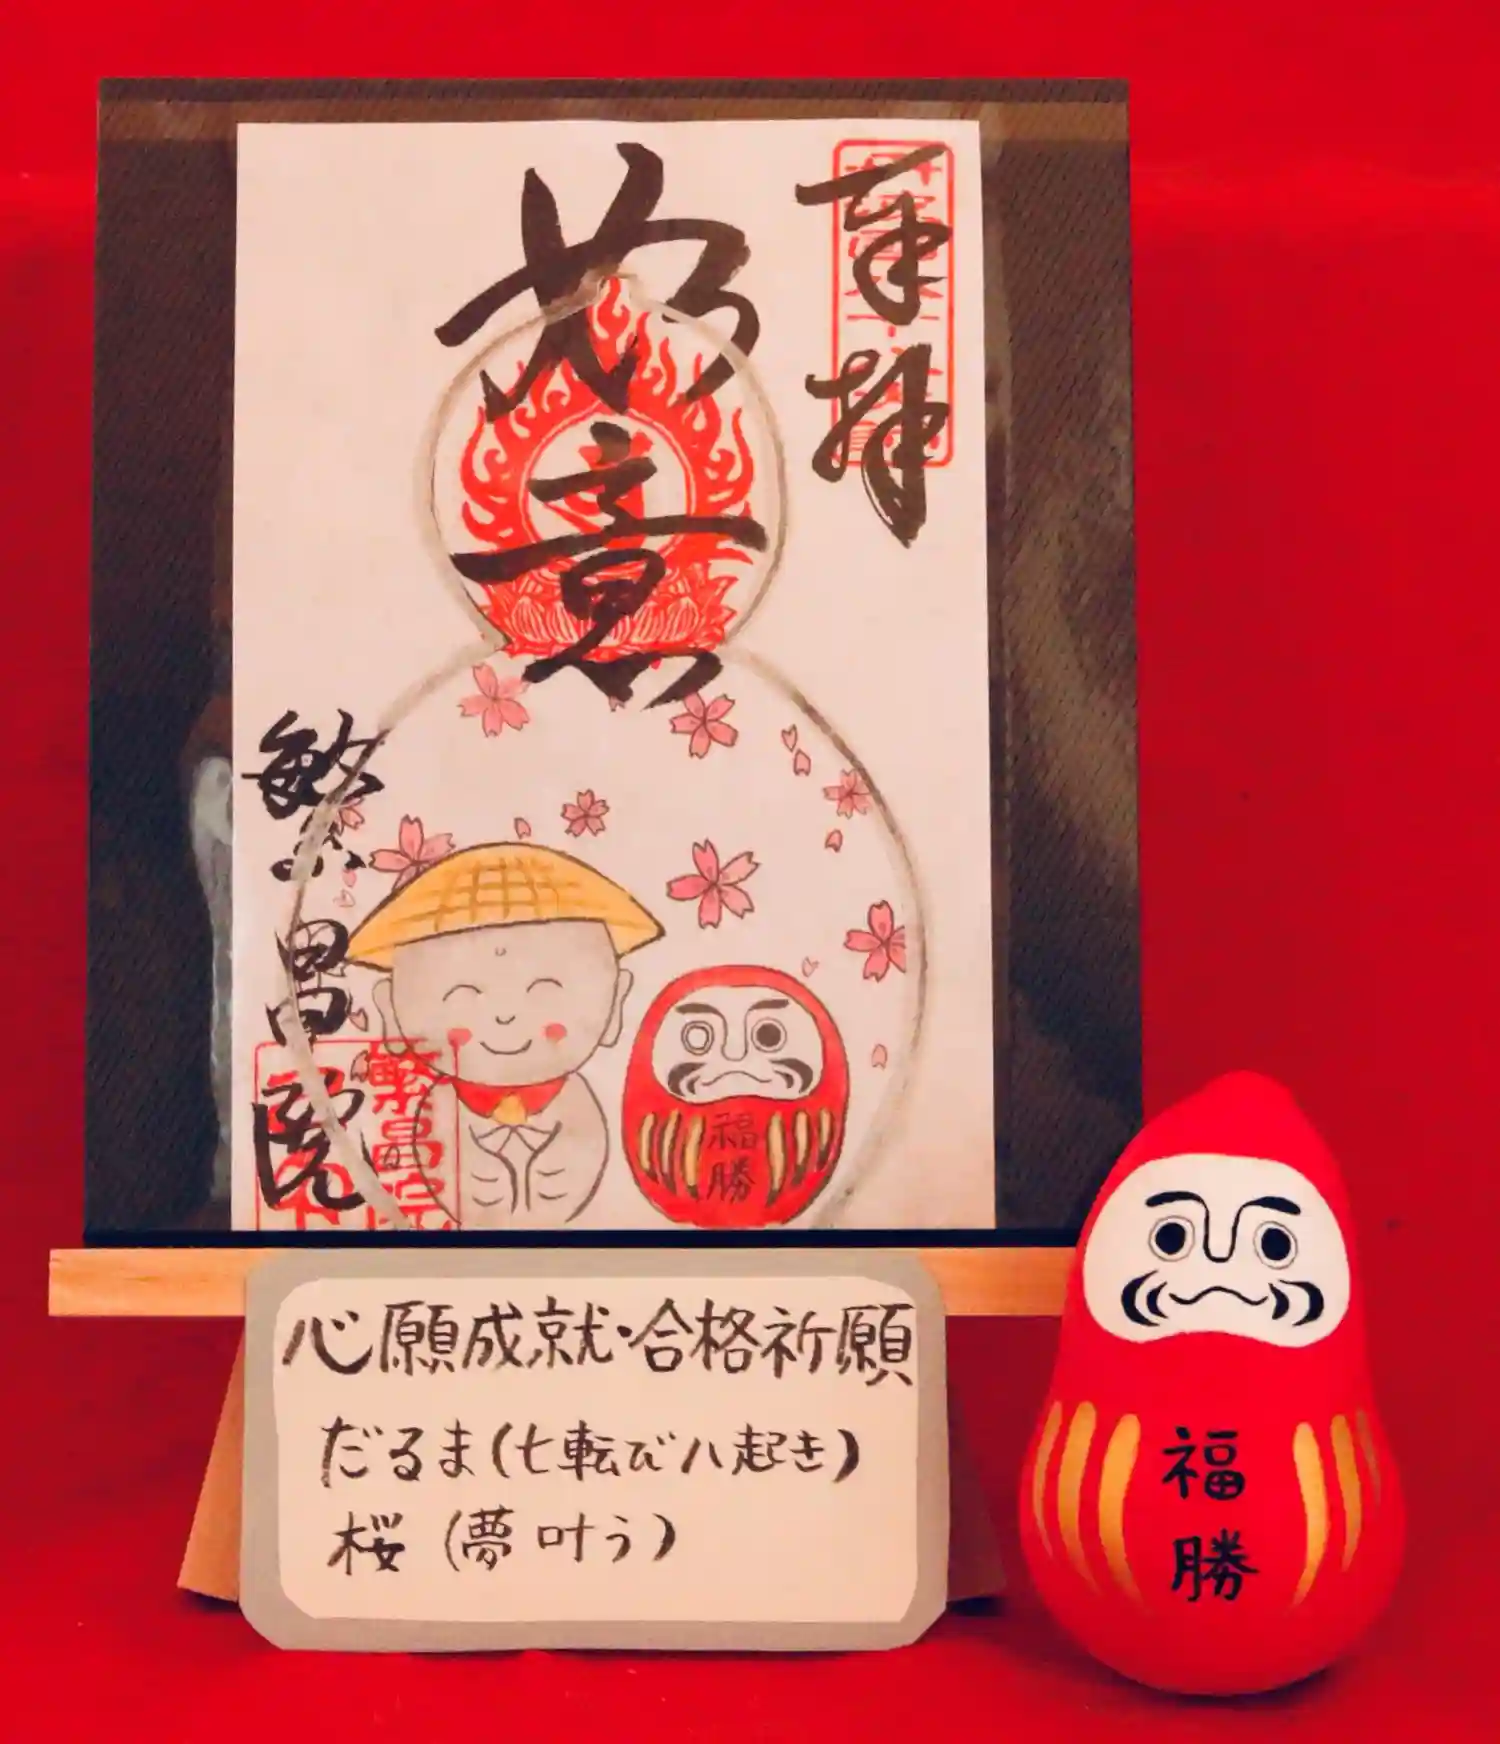 奉拝
如意
繁昌院
繁昌院
福
勝
心願成就・合格祈願
だるま(七転び八起き)
桜 (夢叶う)
福
勝